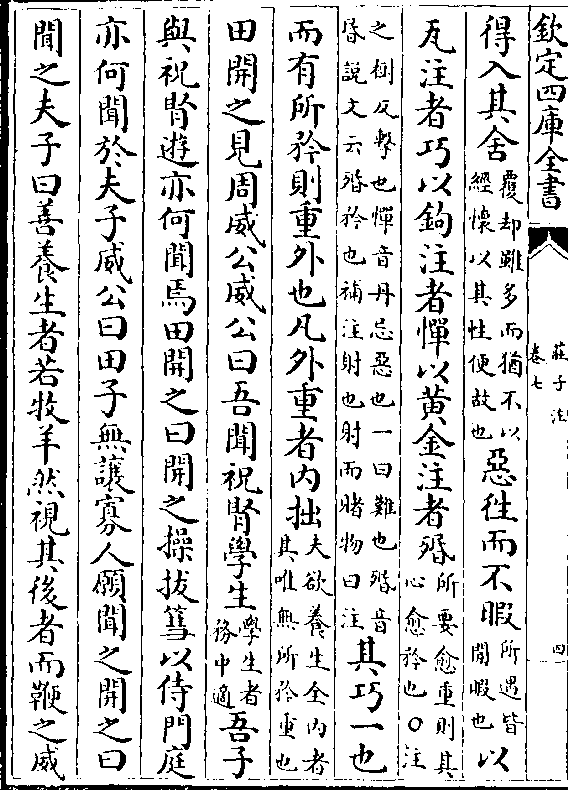 欽定四庫全書
莊子注
卷七
四
得入其舍覆却雖多而猶不以經懷以其性便故也惡往而不暇所遇皆閒暇也以
瓦注者巧以鉤注者憚以黄金注者殙所要愈重則其心愈矜也○注
之樹反擊也憚音丹忌惡也一曰難也殙音昏説文云殙矜也補注射也射而賭物曰注其巧一也
而有所矜則重外也凡外重者内拙夫欲養生全内者其唯無所矜重也
田開之見周威公威公曰吾聞祝腎學生學生者務中適吾子
與祝腎遊亦何聞焉田開之曰開之操拔篲以侍門庭
亦何聞於夫子威公曰田子無讓寡人願聞之開之曰
聞之夫子曰善養生者若牧羊然視其後者而鞭之威